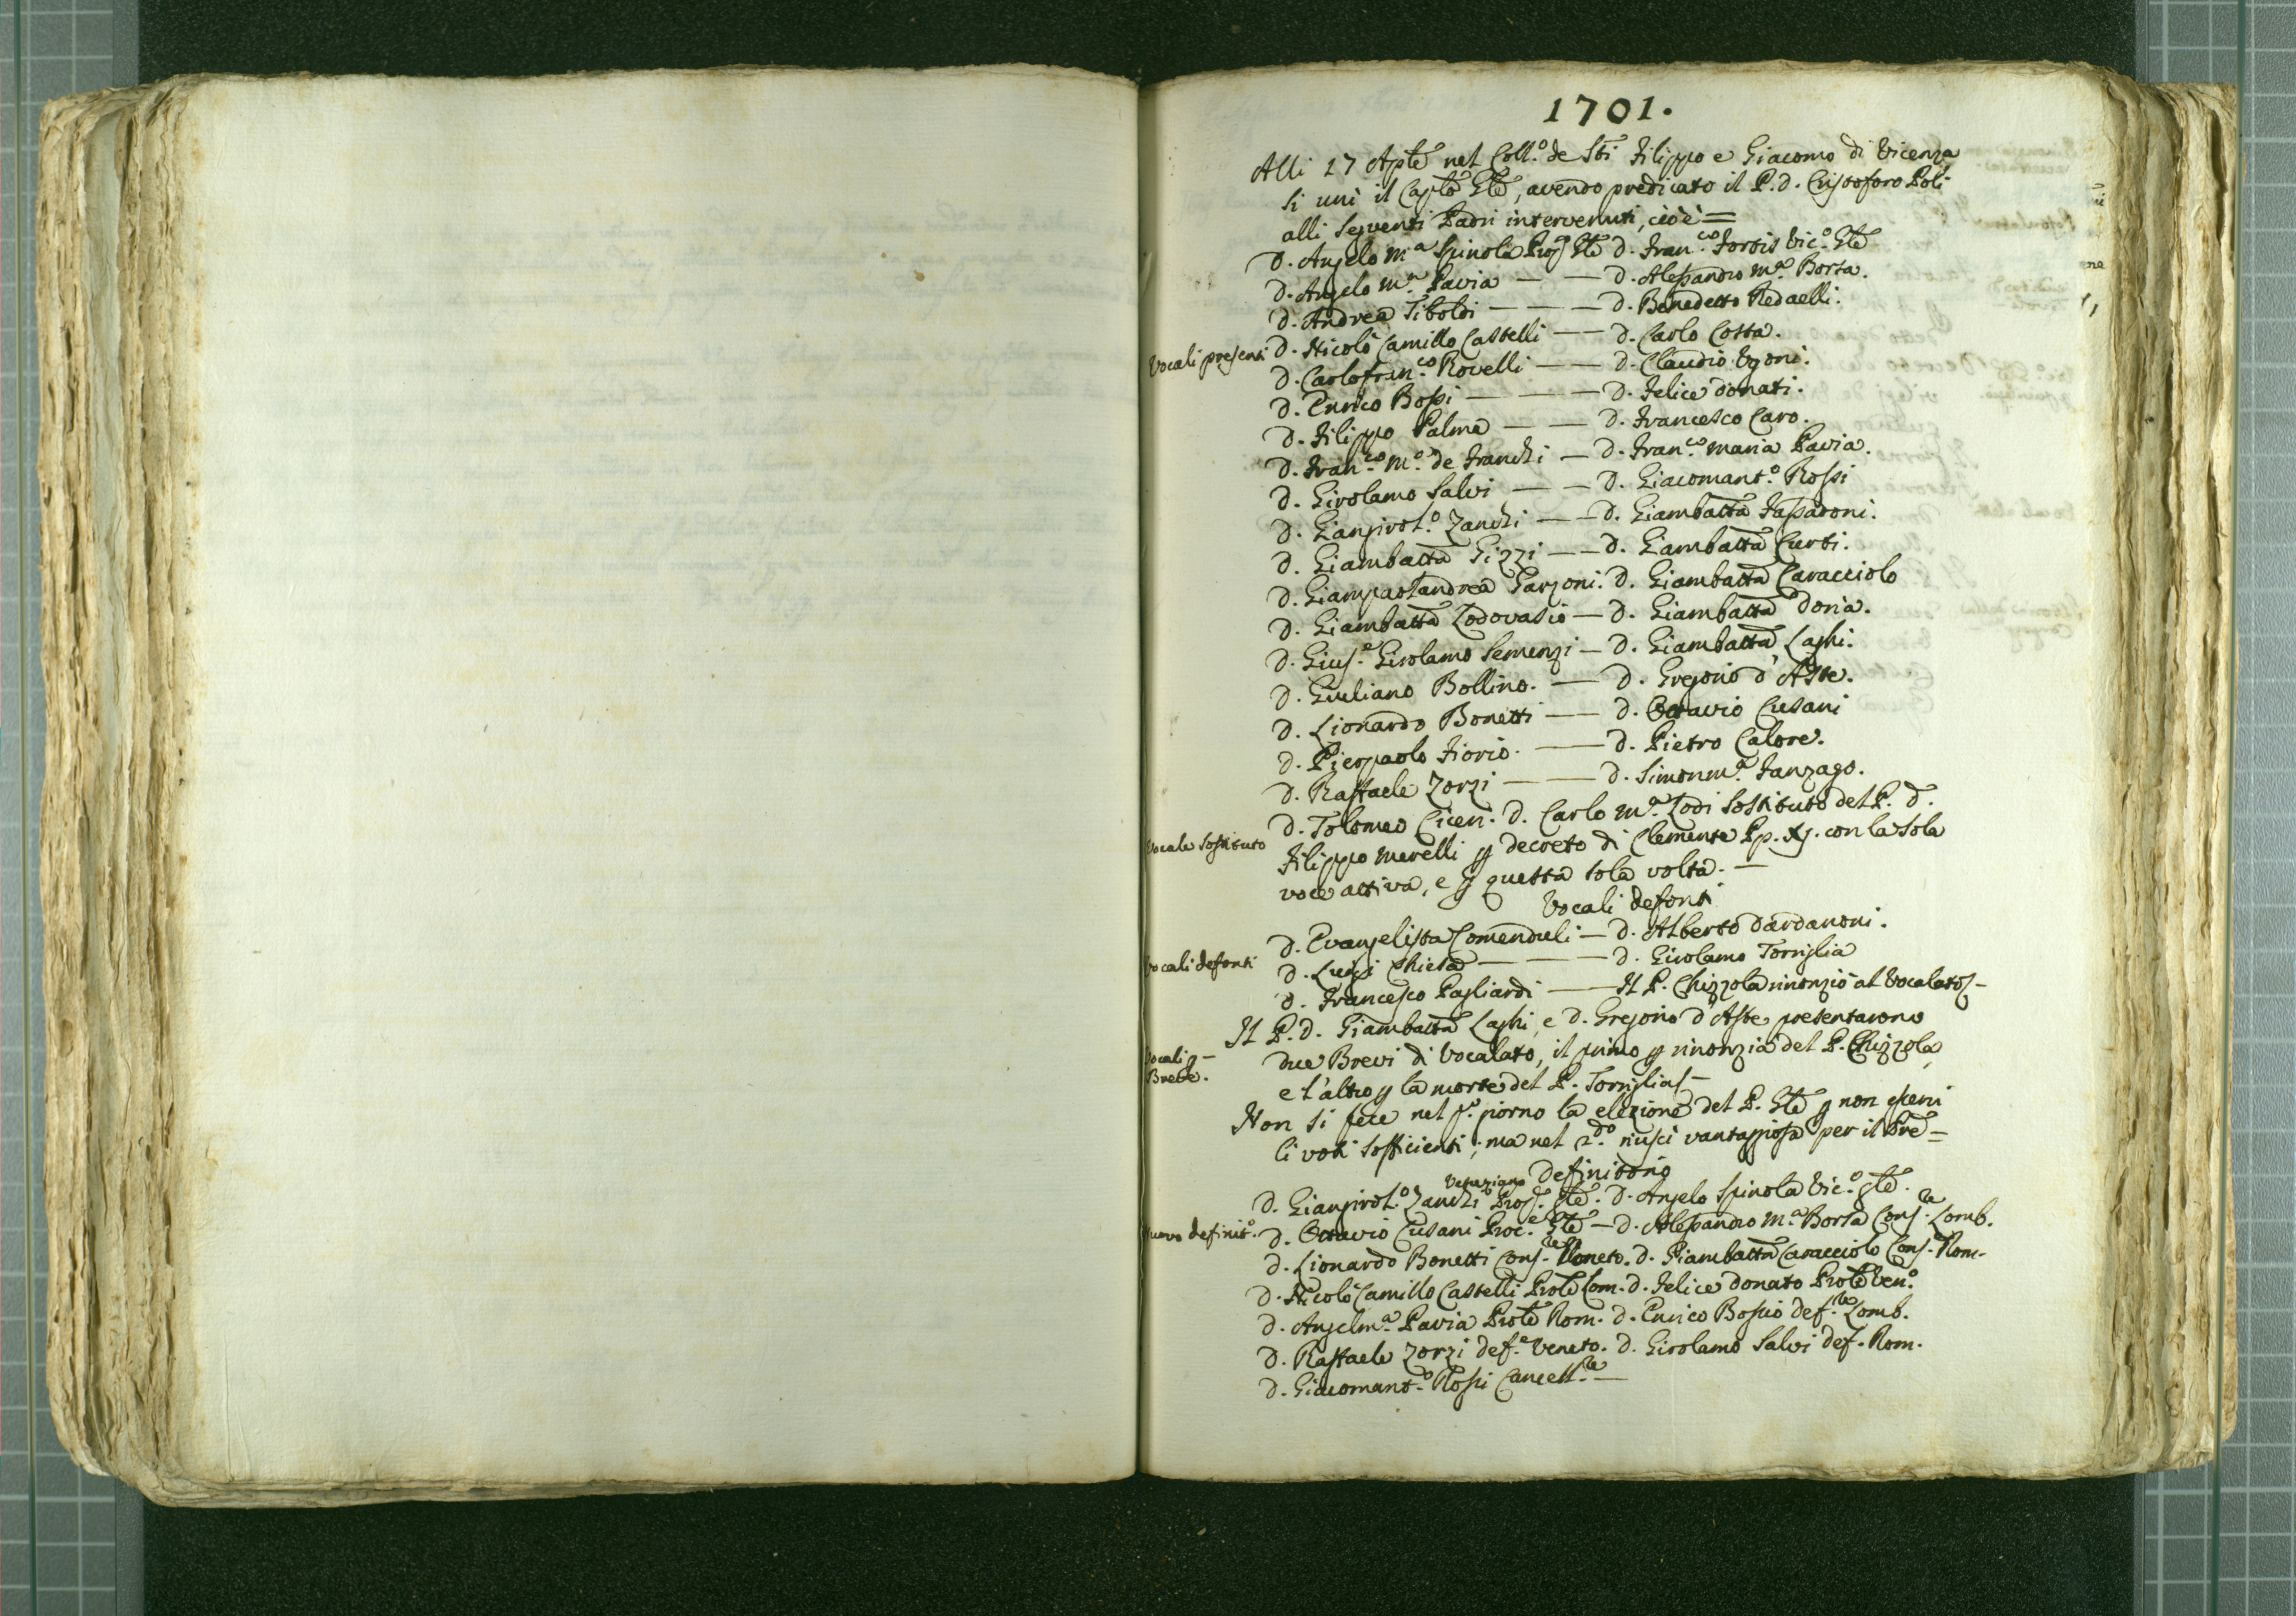 1701.
Alli 17 Aple nel Coll.o de Sti Filippo e Giacomo di Vicenza
si unì il Caplo Gle, avendo predicato il P. d. Cristoforo Poli
alli seguenti Padri intervenuti, cioè =
D. Angelo M.a Spinola Prop. Gle D. Fran.co Fortis Vic.o Gle
D. Angelo M.a Pavia — — D. Alessandro M.a Borsa.
D. Andrea Tiboldi — — — D. Benedetto Redaelli.
Vocali presenti D. Nicolò Camillo Castelli — — D. Carlo Costa.
D. Carlofran.co Rovelli — — D. Claudio Ugoni.
D. Enrico Bossi — — — D. Felice Donati.
D. Filippo Palma — — D. Francesco Caro.
D. Fran.co M.a de Franchi — D. Fran.co Maria Pavia.
D. Girolamo Salvi — — D. Giacomant.o Rossi
D. Giangirol.o Zanchi — — D. Giambatta Fassadoni.
D. Giambatta Gizzi — — D. Giambatta Curti.
D. Giampaolandrea Garzoni. D. Giambatta Caracciolo
D. Giambatta Lodovasio — D. Giambatta Doria.
D. Gius.e Girolamo Semenzi — D. Giambatta Laghi.
D. Giuliano Bollino. — D. Gregorio d'Aste.
D. Lionardo Bonetti — D. Ottavio Cusani
D. Pierpaolo Fiorio. — D. Pietro Calore.
D. Raffaele Zorzi — — D. Simonm.a Fanzago.
D. Tolomeo Ciceri. D. Carlo M.a Lodi Sostituto del P. D.
Vocale Sostituto Filippo Merelli p decreto di Clemente Pp. XI. con la sola
voce attiva, e p questa sola volta. —
Vocali defonti
D. Evangelista Comenduli — D. Alberto Dardanoni.
Vocali defonti D. Luigi Chiesa — — — D. Girolamo Torriglia
D. Francesco Pagliardi — — Il P. Chizzola rinonziò al Vocalato —
Il P. D. Giambatta Laghi, e D. Gregorio d'Aste presentarono
Vocali p — Breve. due Brevi di Vocalato, il primo p rinonzia del P. Chizzola,
e l'altro p la morte del P. Torriglia —
Non si fece nel p.o giorno la elezione del P. Gle p non esservi
li voti sofficienti; ma nel 2.do riuscì vantaggiosa per il Pre =
Veneziano Definitorio
D. Giangirol.o Zanchi Prop. Gle. D. Angelo Spinola Vic.o Gle.
Nuovo definit.o D. Ottavio Cusani Proc.e Gle — D. Alessandro M.a Borsa Cons.re Lomb.
D. Lionardo Bonetti Cons.re Veneto. D. Giambatta Caracciolo Cons. Rom.
D. Nicolò Camillo Castelli Prole Lom. D. Felice Donato Prole Ven.o
D. Angelm.a Pavia Prole Rom. D. Enrico Bossio def.re Lomb.
D. Raffaele Zorzi def.e Veneto. D. Girolamo Salvi def. Rom.
D. Giacomant.o Rossi Cancell.re —